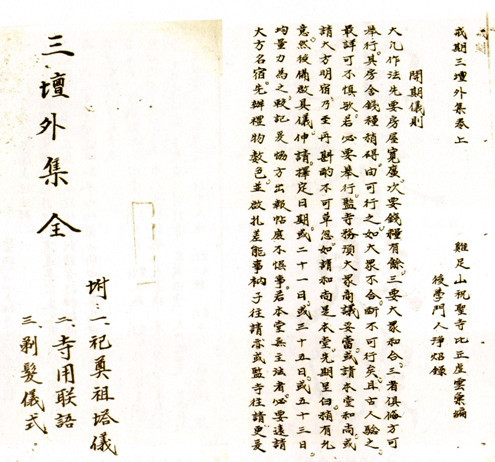 戒期三壇外集卷上
雞足山祝聖寺比丘虛雲彙編
後學門人淨焰錄
開期儀則
大凡作法先要房屋寬廣次要錢糧有餘三要大眾和合三者俱俻方可
舉行其房舍錢糧稍碍由可行之如大眾不合斷不可行矣且古人驗之
最詳可不慎歟若必要舉行監寺務須大眾尚議妥當或請本堂和尚或
請大方明宿乃至再斟酌不可草忽如請和尚是本堂先期呈白稍有允
意然後俻啟具儀伸請擇定日期或二十一日或三十五日或五十三日
均量力為之出報帖庶不悞事若本堂無主法者必要遠請
大方名宿先辦禮物數色並啟扎差能事衲子往請亦或監寺往請更妥
三壇外集 全
附 一、祀奠祖塔儀
二、寺用联語
三、剃髮儀式